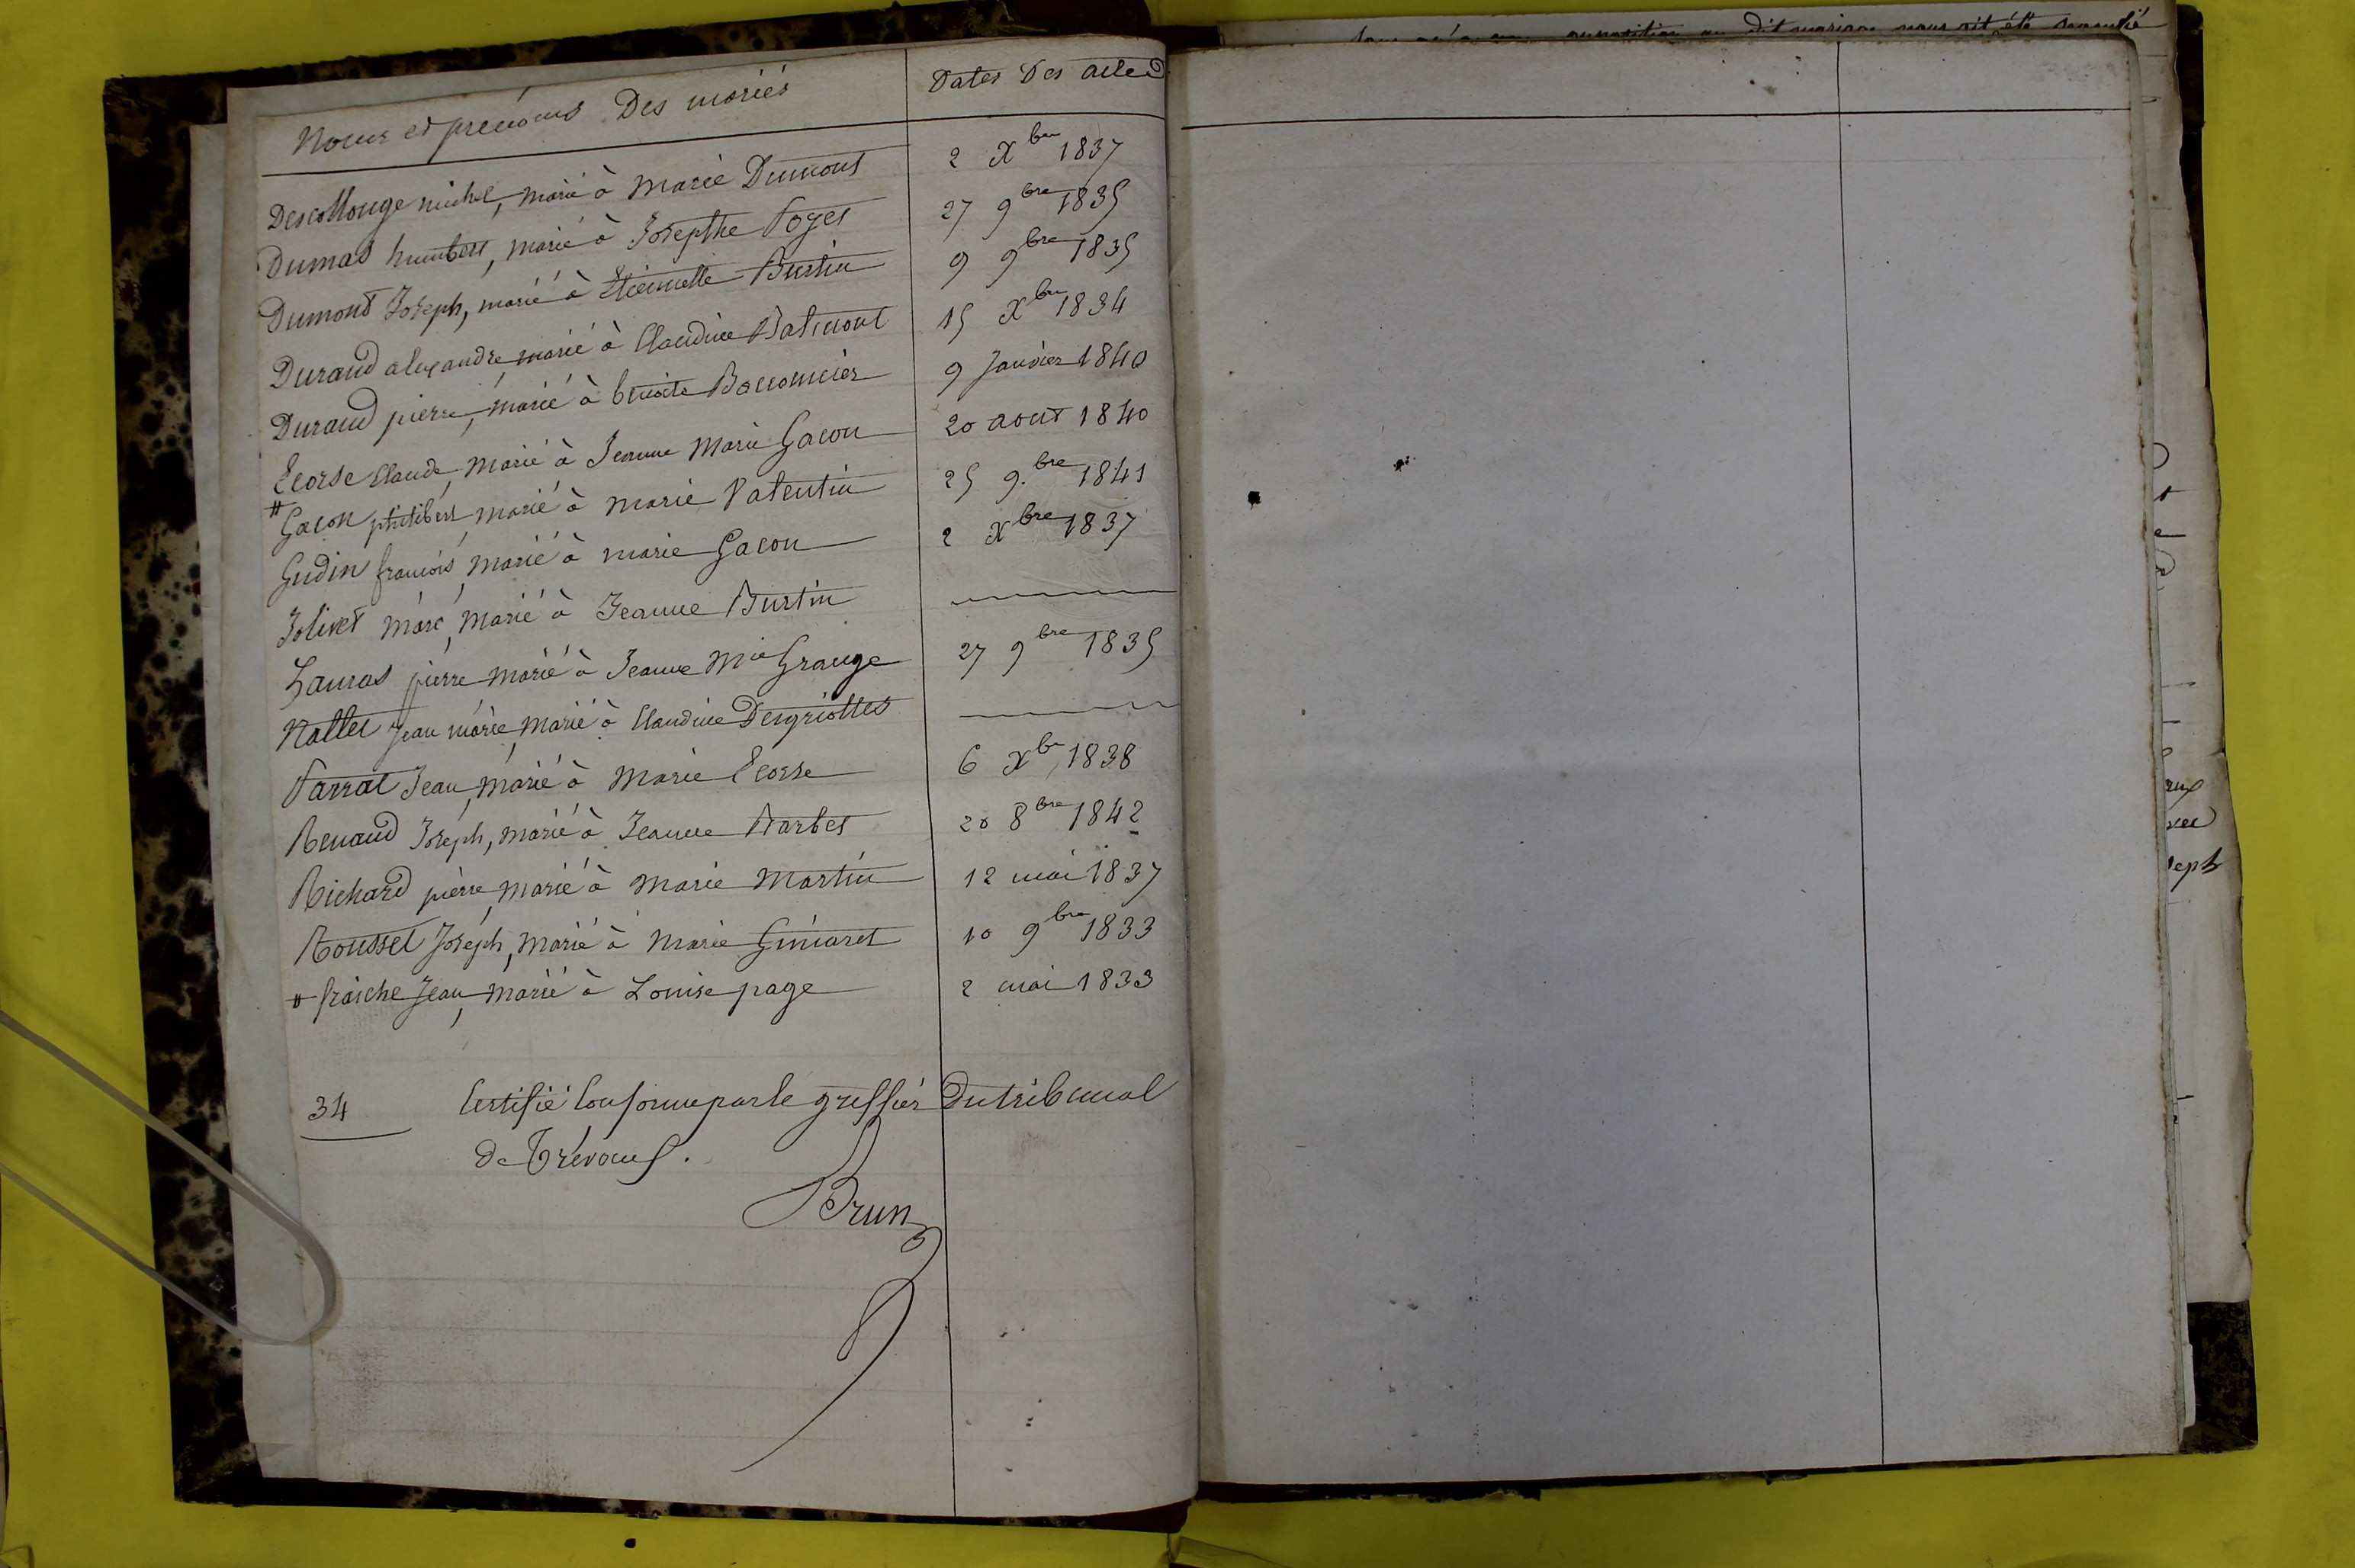 Noms et prénoms Des mariés Dates Des actes
Descollonge michel, marié à Marie Dumont 2 Xbre 1837
Dumas humbert, marié à Josepthe Poyet 27 9bre 1835
Dumont Joseph, marié à Etiennette Burtin 9 9bre 1835
Durand alexandre marié à Claudine Batmont 15 Xbre 1834
Durand pierre, marié à benoite 9 Janvier 1840
Ecorse Claude, Marié à Jeanne Marie Gacon 20 aout 1840
# Gacon philibert, marié à Marie Valentin 25 9.bre 1841
Gudin francois, Marié à marie Gacon 2 Xbre 1837
Jolivet Marc, Marié à Jeanne Burtin
Lauras pierre marié à Jeanne Mie Grange 27 9bre 1835
Nallet Jean marie, Marié à Claudine Desgriottes
Parrat Jean, Marié à Marie Ecorse 6 Xbre 1838
Renaud Joseph, marié à Jeanne Barbet 20 8bre 1842
Richard pierre, Marié à Marie Martin 12 mai 1837
Rousset Joseph, Marié à Marie Giniaret 10 9bre 1833
# fraiche Jean, Marié à Louise page 2 mai 1833
34 Certifié Conforme par le greffier Du tribunal
De Trévoux.
Brun